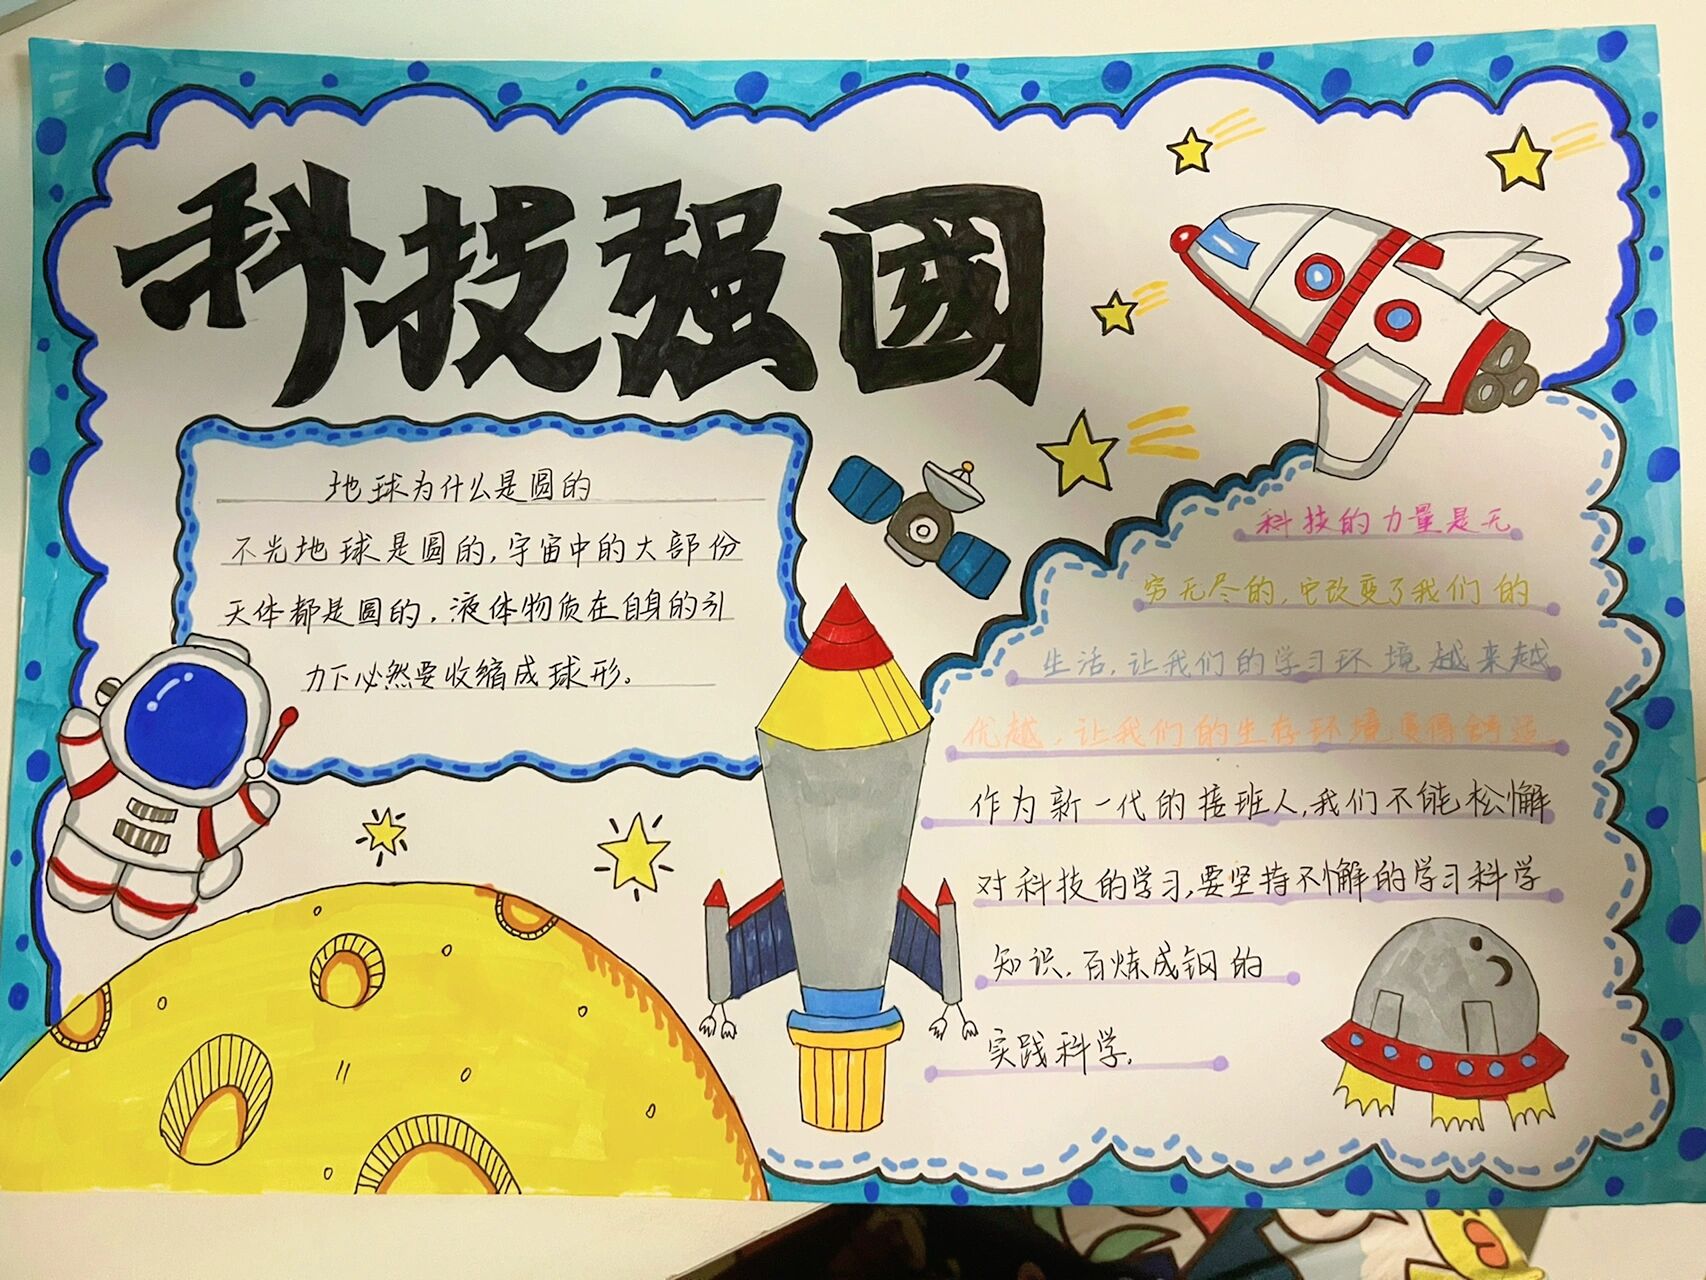 科技强國
地球为什么是圆的
不光地球是圆的,宇宙中的大部份
天体都是圆的,液体物质在自身的引
力下必然要收缩成球形。
科技的力量是无
穷无尽的,它改变了我们的
生活,让我们的学习环境越来越
优越,让我们的生存环境变得舒适。
作为新一代的接班人,我们不能松懈
对科技的学习,要坚持不懈的学习科学
知识,百炼成钢的
实践科学.